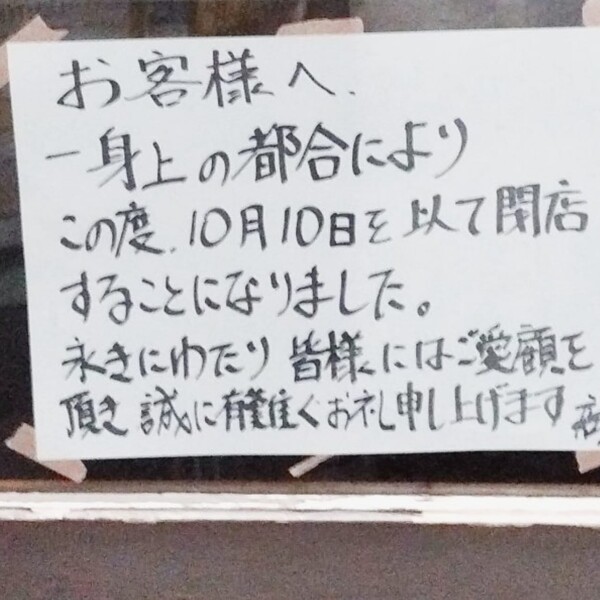 お客様へ.
一身上の都合により
この度、10月10日を以て閉店
することになりました。
永きにわたり皆様にはご愛顧を
頂き誠に有難くお礼申し上げます